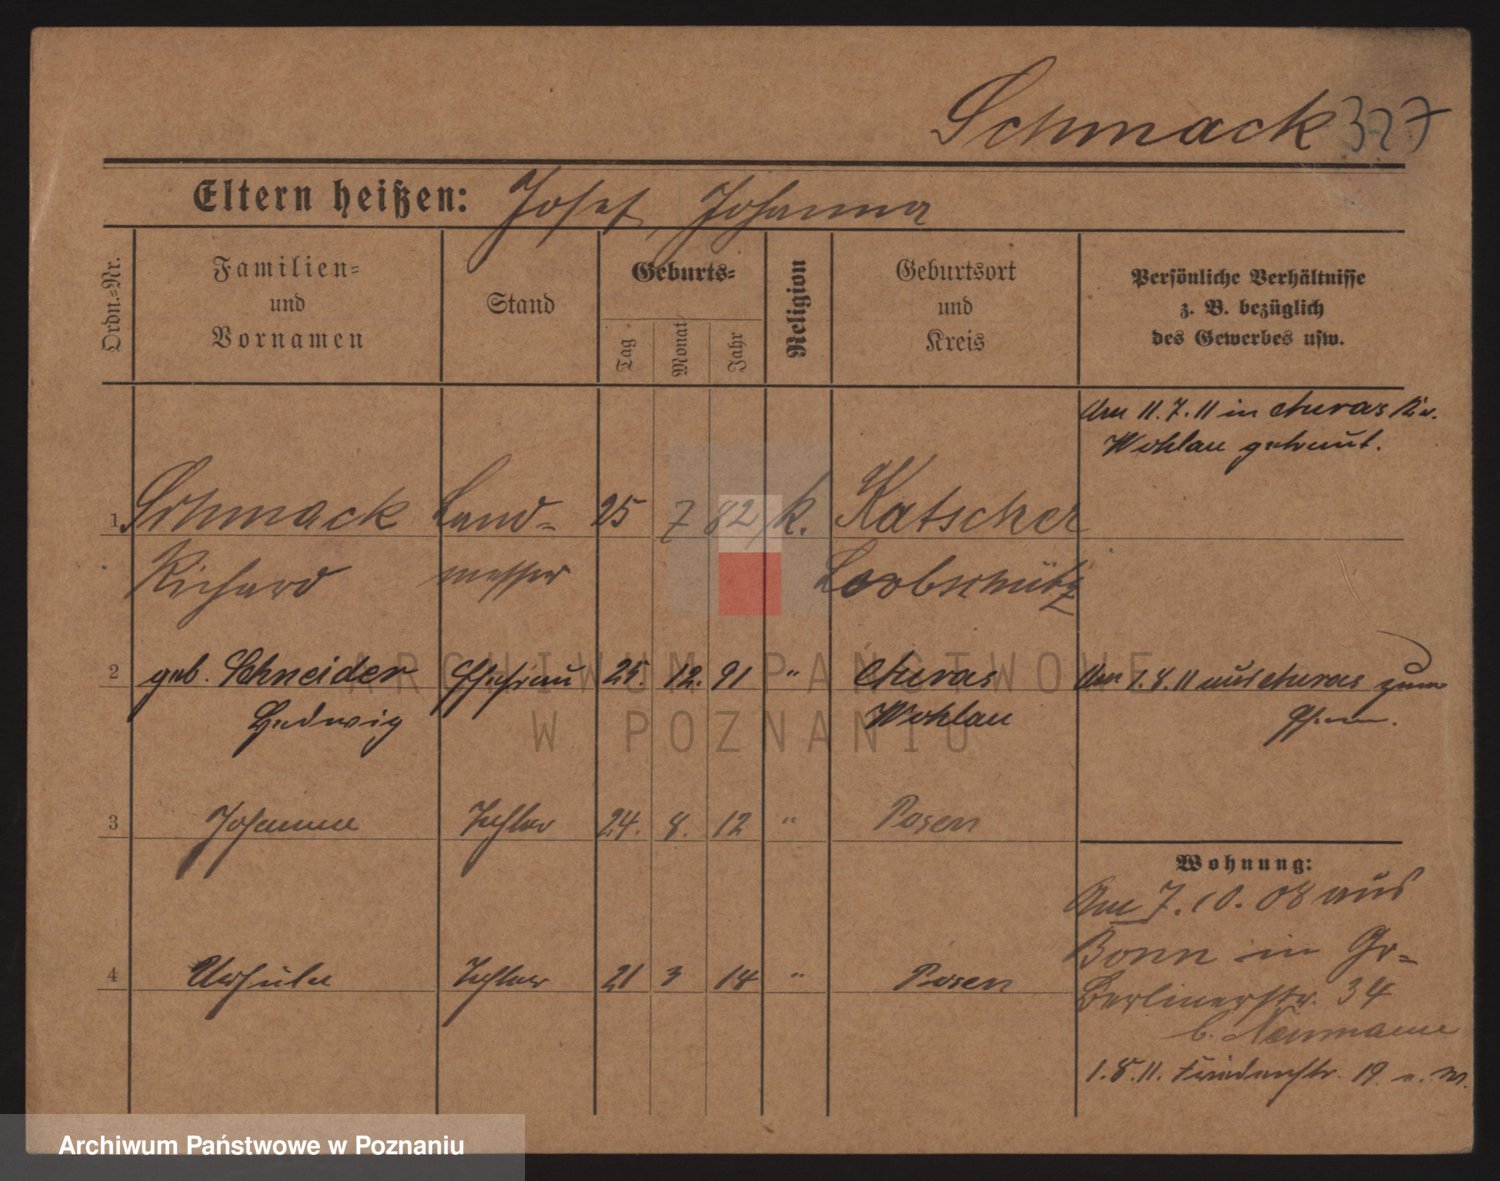 Schmack 327
Eltern heißen: Josef, Johanna
Ordn.=Nr.
Familien=
und
Vornamen
Stand
Geburts=
Tag
Monat
Jahr
Religion
Geburtsort
und
Kreis
Persönliche Verhältnisse
z. B. bezüglich
des Gewerbes usw.
Am 11.7.11 in Auras Kr.
Wohlau getraut.
1 Schmack Land= 25 7 82 k. Katscher
Richard messer Leobschütz
2 geb. Schneider Ehefrau 25. 12. 91 " Auras Am 1.8.11 aus Auras zum
Hedwig Wohlau
3 Johanna Tochter 24. 8. 12 " Posen
4 Ursula Tochter 21 3 14 " Posen
Wohnung:
Am 7.10.08 aus
Bonn in Gr=
Berlinerstr. 34
b. Neumann
1.8.11. 19
ARCHIWUM PAŃSTWOWE
W POZNANIU
Archiwum Państwowe w Poznaniu